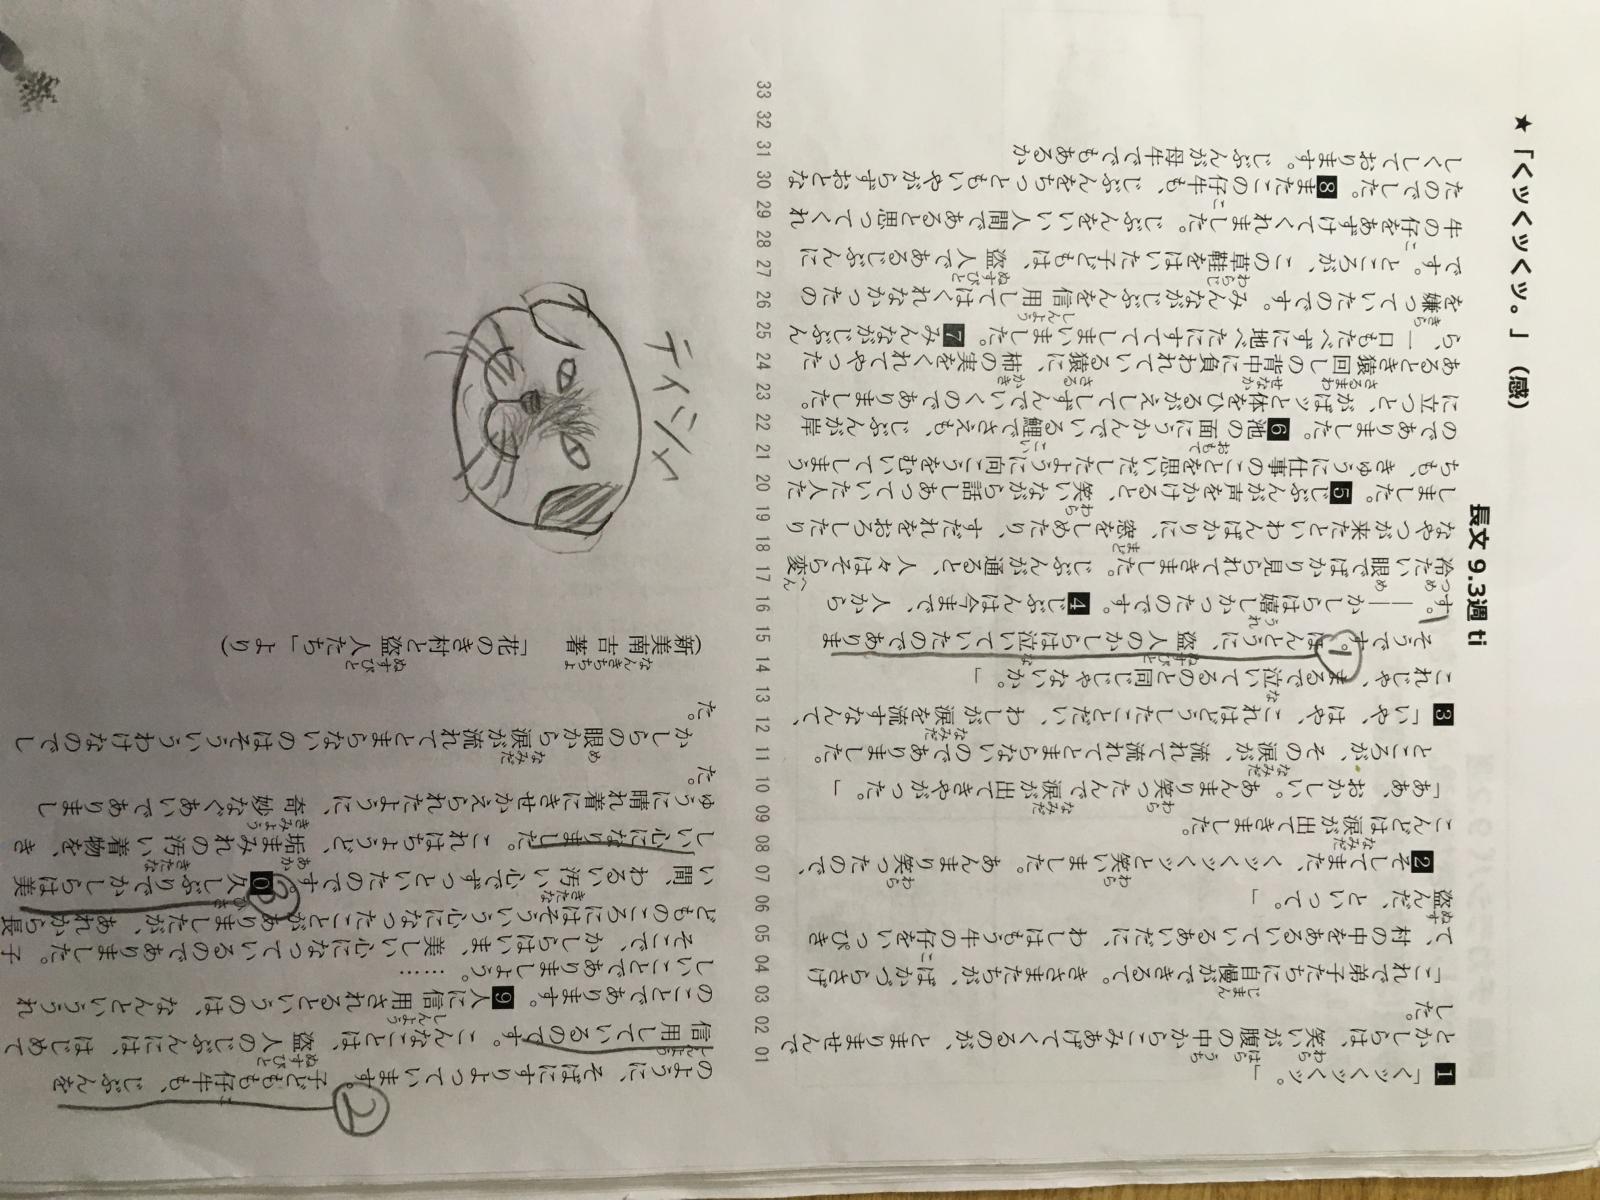 長文 9.3週 ti
★「くッくッくッ。」(感)
1「くッくッくッ。」
とかしらは、笑いが腹の中からこみあげてくるのが、とまりませんで
した。
「これで弟子たちに自慢ができるて。きさまたちが、ばかづらさげ
て、村の中をあるいているあいだに、わしはもう牛の仔をいっぴき
盗んだ、といって。」
2そしてまた、くッくッくッと笑いました。あんまり笑ったので、
こんどは涙が出てきました。
「ああ、おかしい。あんまり笑ったんで涙が出てきやがった。」
ところが、その涙が、流れて流れてとまらないのでありました。
3「いや、はや、これはどうしたことだい、わしが涙を流すなんて、
これじゃ、まるで泣いてるのと同じじゃないか。」
そうです。ほんとうに、盗人のかしらは泣いていたのでありま
す。――かしらは嬉しかったのです。4じぶんは今まで、人から
冷たい眼でばかり見られてきました。じぶんが通ると、人々はそら変
なやつが来たといわんばかりに、窓をしめたり、すだれをおろしたり
しました。5じぶんが声をかけると、笑いながら話しあっていた人た
ちも、きゅうに仕事のことを思いだしたように向こうをむいてしまう
のでありました。6池の面にうかんでいる鯉でさえも、じぶんが岸
に立つと、がばッと体をひるがえしてしずんでいくのでありました。
あるとき猿回しの背中に負われている猿に、柿の実をくれてやった
ら、一口もたべずに地べたにすててしまいました。7みんながじぶん
を嫌っていたのです。みんながじぶんを信用してはくれなかったの
です。ところが、この草鞋をはいた子どもは、盗人であるじぶんに
牛の仔をあずけてくれました。じぶんをいい人間であると思ってくれ
たのでした。8またこの仔牛も、じぶんをちっともいやがらずおとな
しくしております。じぶんが母牛ででもあるか
01 02 03 04 05 06 07 08 09 10 11 12 13 14 15 16 17 18 19 20 21 22 23 24 25 26 27 28 29 30 31 32 33
のように、そばにすりよっています。子どもも仔牛も、じぶんを
信用しているのです。こんなことは、盗人のじぶんには、はじめて
のことであります。9人に信用されるというのは、なんといううれ
しいことでありましょう。……
そこで、かしらはいま、美しい心になっているのでありました。子
どものころにはそういう心になったことがありましたが、あれから長
い間、わるい汚い心でずっといたのです。0久しぶりでかしらは美
しい心になりました。これはちょうど、垢まみれの汚い着物を、き
ゅうに晴れ着にきせかえられたように、奇妙なぐあいでありまし
た。
かしらの眼から涙が流れてとまらないのはそういうわけなのでし
た。
(新美南吉著 「花のき村と盗人たち」より)
1
2
3